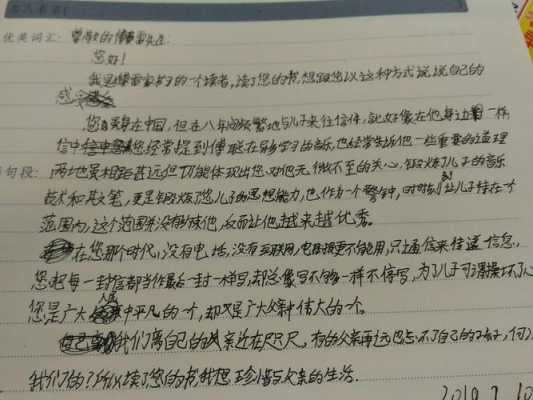 优美词汇: 尊敬的傅雷先生:
您好!
我是傅雷家书的一个读者,读了您的书,想跟您以这种方式说说自己的
感
您身在中国,但在八年间频繁地与儿子来往信件,就好像在他身边一样
信中您经常提到傅聪在异乡学的音乐,也经常告诉他一些重要的道理
句段: 两地虽相距甚远但切能体现出您对他无微不至的关心,锻炼了儿子的音乐
技术和其文笔,更是锻炼了您儿子的思想能力,也作为一个警钟,时时刻刻让儿子待在一个
范围内,这个范围并没有束缚他,反而让他越来越优秀。
在您那个时代,没有电话,没有互联网,电脑更不能用,只通信来传递信息,
您把每一封信都当作最后一封一样写,却总像写不够一样不停写,为了儿子可谓操坏了心
您是广大人民中平凡的一个,却又是广大父亲中伟大的一个。
我们离自己的父亲近在咫尺,有的父亲再远也忘不了自己的孩子,何
我们的?所以读了您的书,我想珍惜与父亲的生活.
2019.7.10